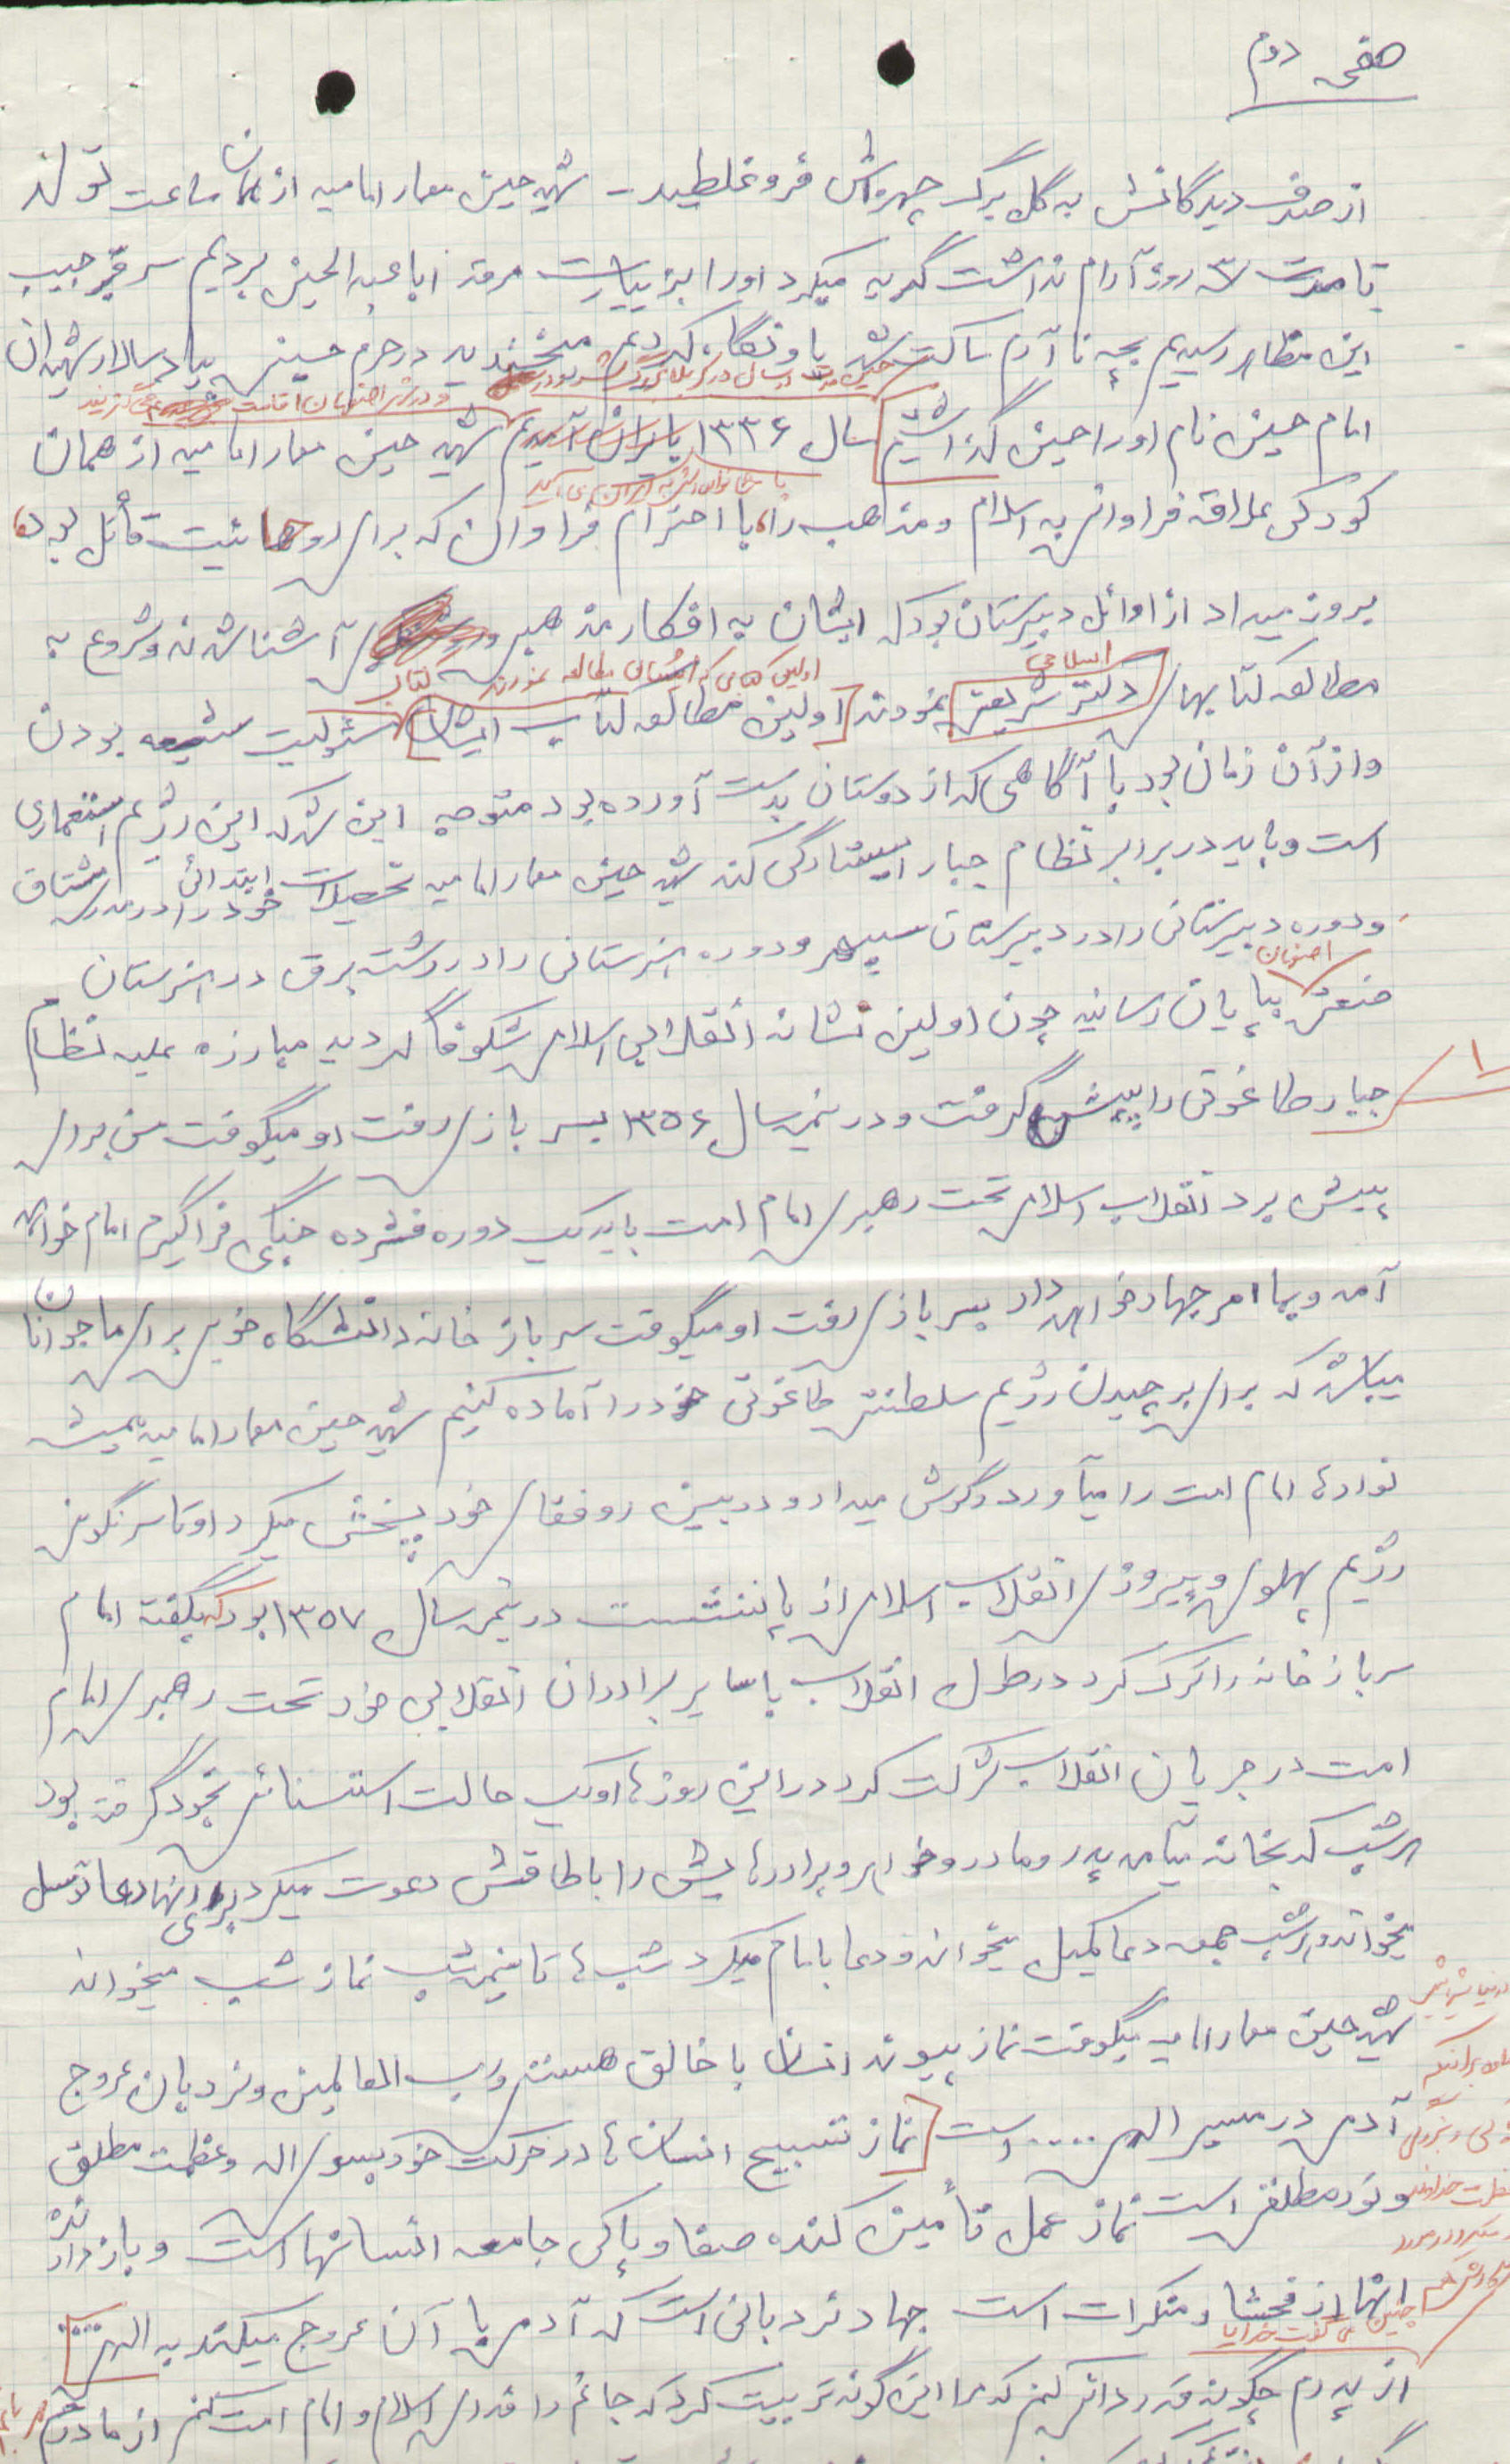 صفحه دوم
از صدف دیدگانش به گل برگ چهره‌اش فرو غلطید - شهید حسین معمار امامیه از همان ساعت تولد
تا مدت ۳ روز آرام نداشت گریه میکرد او را بزیارت مرقد اباعبدالحسین بردیم سر قبر حبیب
ابن مظاهر رسیدیم بچه نا آرام ساکت شد باو نگاه کردیم میخندید در حرم حسینی بیاد سالار شهیدان
و در شهر اصفهان اقامت
امام حسین نام او را حسین گذاشتیم سال ۱۳۳۶ بایران آمدیم شهید حسین معمار امامیه از همان
با خانواده‌اش به ایران می آید
کودکی علاقه فراوانی به اسلام و مذاهب را، با احترام فراوان که برای روحانیت قائل بود،
بروز میداد از اوائل دبیرستان بود که ایشان به افکار مذهبی آشنا شدند و شروع به
اسلامی اولین کتابی که ایشان مطالعه نمودند کتاب
مطالعه کتابهای دکتر شریعتی نمودند اولین مطالعه کتاب ایشان مسئولیت شیعه بودن
و از آن زمان بود با آگاهی که از دوستان بدست آورده بود متوجه این شد که این رژیم استعماری
است و باید در برابر نظام جبار ایستادگی کند شهید حسین معمار امامیه تحصیلات ابتدائی خود را در مدرسه مشتاق
و دوره دبیرستانی را در دبیرستان سپهر و دوره هنرستانی را در رشته برق در هنرستان
اصفهان
صنعتی بپایان رسانید چون اولین نشانه انقلابی اسلامی شکوفا گردید مبارزه علیه نظام
۱ جبار طاغوتی را پیش گرفت و در نیمه سال ۱۳۵۶ بسربازی رفت او میگوفت من برای
پیش برد انقلاب اسلامی تحت رهبری امام امت باید یک دوره فشرده جنگی فراگیرم امام خواهد
آمد و بما امر جهاد خواهد داد بسربازی رفت او میگوفت سرباز خانه دانشگاه خوبی برای ما جوانان
میباشد که برای برچیدن رژیم سلطنتی طاغوتی خود را آماده کنیم شهید حسین معمار امامیه همیشه
نوارهای امام امت را میآورد و گوش میداد و در بین روفقای خود پخش میکرد او تا سرنگونی
رژیم پهلوی و پیروزی انقلاب اسلامی از پا ننشست در نیمه سال ۱۳۵۷ بود که بگفته امام
سرباز خانه را ترک کرد در طول انقلاب با سایر برادران انقلابی خود تحت رهبری امام
امت در جریان انقلاب شرکت کرد در این روزها او یک حالت استسنائی بخود گرفته بود
هر شب که بخانه میآمد پدر و مادر و خواهر و برادرهایش را باطاقش دعوت میکرد برای آنها دعا توسل
میخواند و هر شب جمعه دعا کمیل میخواند و دعا بامام میکرد شب ها تا نیمه شب نماز شب میخواند
شهید حسین معمار امامیه میگوفت نماز پیوند انسان با خالق هستی و رب العالمین و نردبان عروج
آدمی در مسیر الهی ..... است نماز تسبیح انسان ها در حرکت خود بسوی اله و عظمت مطلق
و نور مطلق است نماز عمل تأمین کننده صفا و پاکی جامعه انسانها است و باز دارنده
انها از فحشا و منکرات است جهاد نردبانی است که آدمی با آن عروج میکند به الهی....
چنین می گفت خدایا
از پدرم چگونه قدردانی کنم که مرا این گونه تربیت کرد که جانم را فدای اسلام و امام امت کنم از مادرم